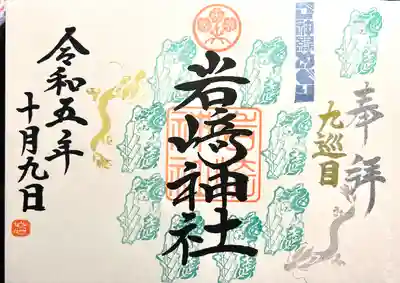 奉拝
九巡目
岩﨑神社
令和五年
十月九日